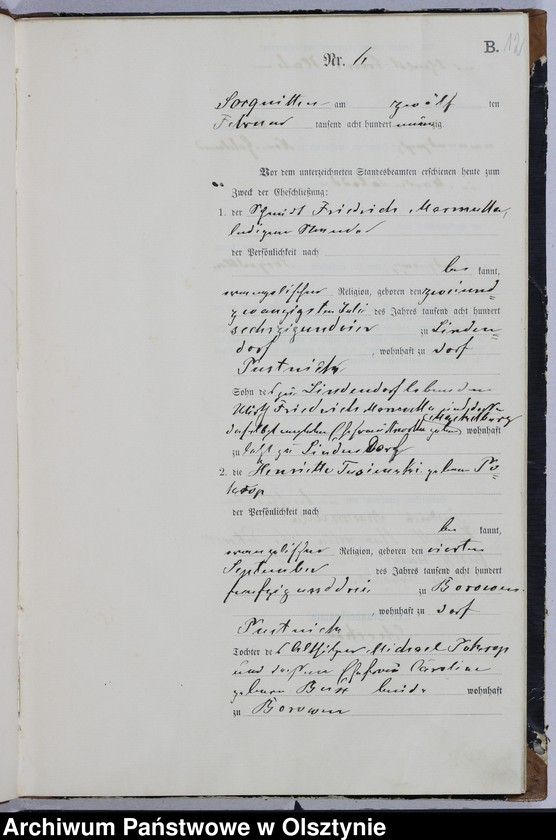 B. 12
Nr. 6
Sorquitten am zwölf ten
Februar tausend acht hundert neunzig.
Vor dem unterzeichneten Standesbeamten erschienen heute zum
Zweck der Eheschließung:
1. der Schmidt Friedrich Marmulla,
ledigen Standes
der Persönlichkeit nach
be kannt,
evangelischer Religion, geboren den zwei und
zwanzigsten Juli des Jahres tausend acht hundert
sechszig und vier zu Linden-
dorf, wohnhaft zu Dorf
Pustnick
Sohn des zu Lindendorf lebenden
Friedrich Marmulla und dessen
daselbst Ehefrau geborene wohnhaft
zu Lindendorf
2. die Henriette geborene Po-
kropp
der Persönlichkeit nach
be kannt,
evangelischer Religion, geboren den vierten
September des Jahres tausend acht hundert
fünfzig und drei zu Borowen
, wohnhaft zu Dorf
Pustnick
Tochter des Altsitzer Michael Pokropp
und dessen Ehefrau Caroline
geborene beide wohnhaft
zu Borowen
Archiwum Państwowe w Olsztynie